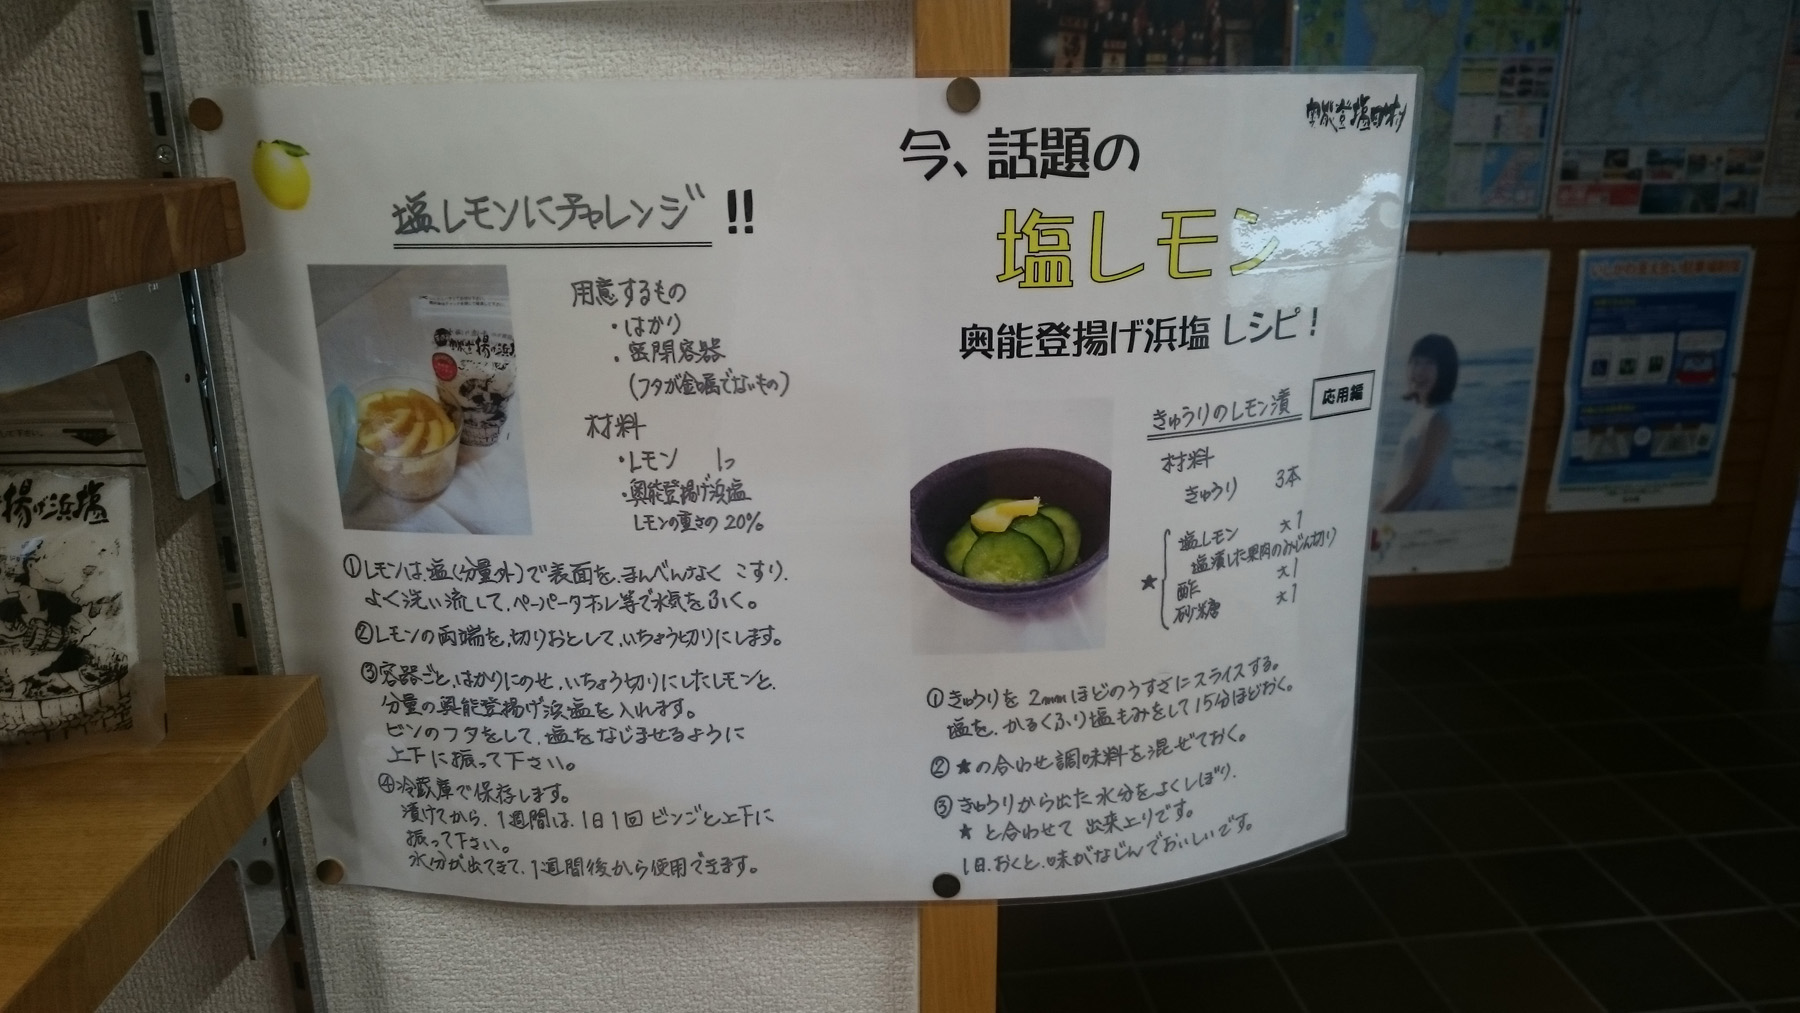 塩レモンにチャレンジ!!
用意するもの
・はかり
・密閉容器
(フタが金属でないもの)
材料
・レモン 1つ
・奥能登揚げ浜塩
レモンの重さの20%
①レモンは、塩(分量外)で表面を、まんべんなく こすり、
よく洗い流して、ペーパータオル等で水気をふく。
②レモンの両端を、切りおとして、いちょう切りにします。
③容器ごと、はかりにのせ、いちょう切りにしたレモンと、
分量の奥能登揚げ浜塩を入れます。
ビンのフタをして、塩をなじませるように
上下に振って下さい。
④冷蔵庫で保存します。
漬けてから、1週間は、1日1回 ビンごと上下に
振って下さい。
水分が出てきて、1週間後から使用できます。
奥能登塩田村
今、話題の
塩レモン
奥能登揚げ浜塩 レシピ!
きゅうりのレモン漬 応用編
材料
きゅうり 3本
★ 塩レモン 大1
塩漬した果肉のみじん切り
酢 大1
砂糖 大1
①きゅうりを 2mmほどのうすさにスライスする。
塩を、かるくふり塩もみをして15分ほどおく。
②★の合わせ調味料を混ぜておく。
③きゅうりから出た水分をよくしぼり、
★と合わせて 出来上りです。
1日、おくと、味がなじんでおいしいです。
揚げ浜塩